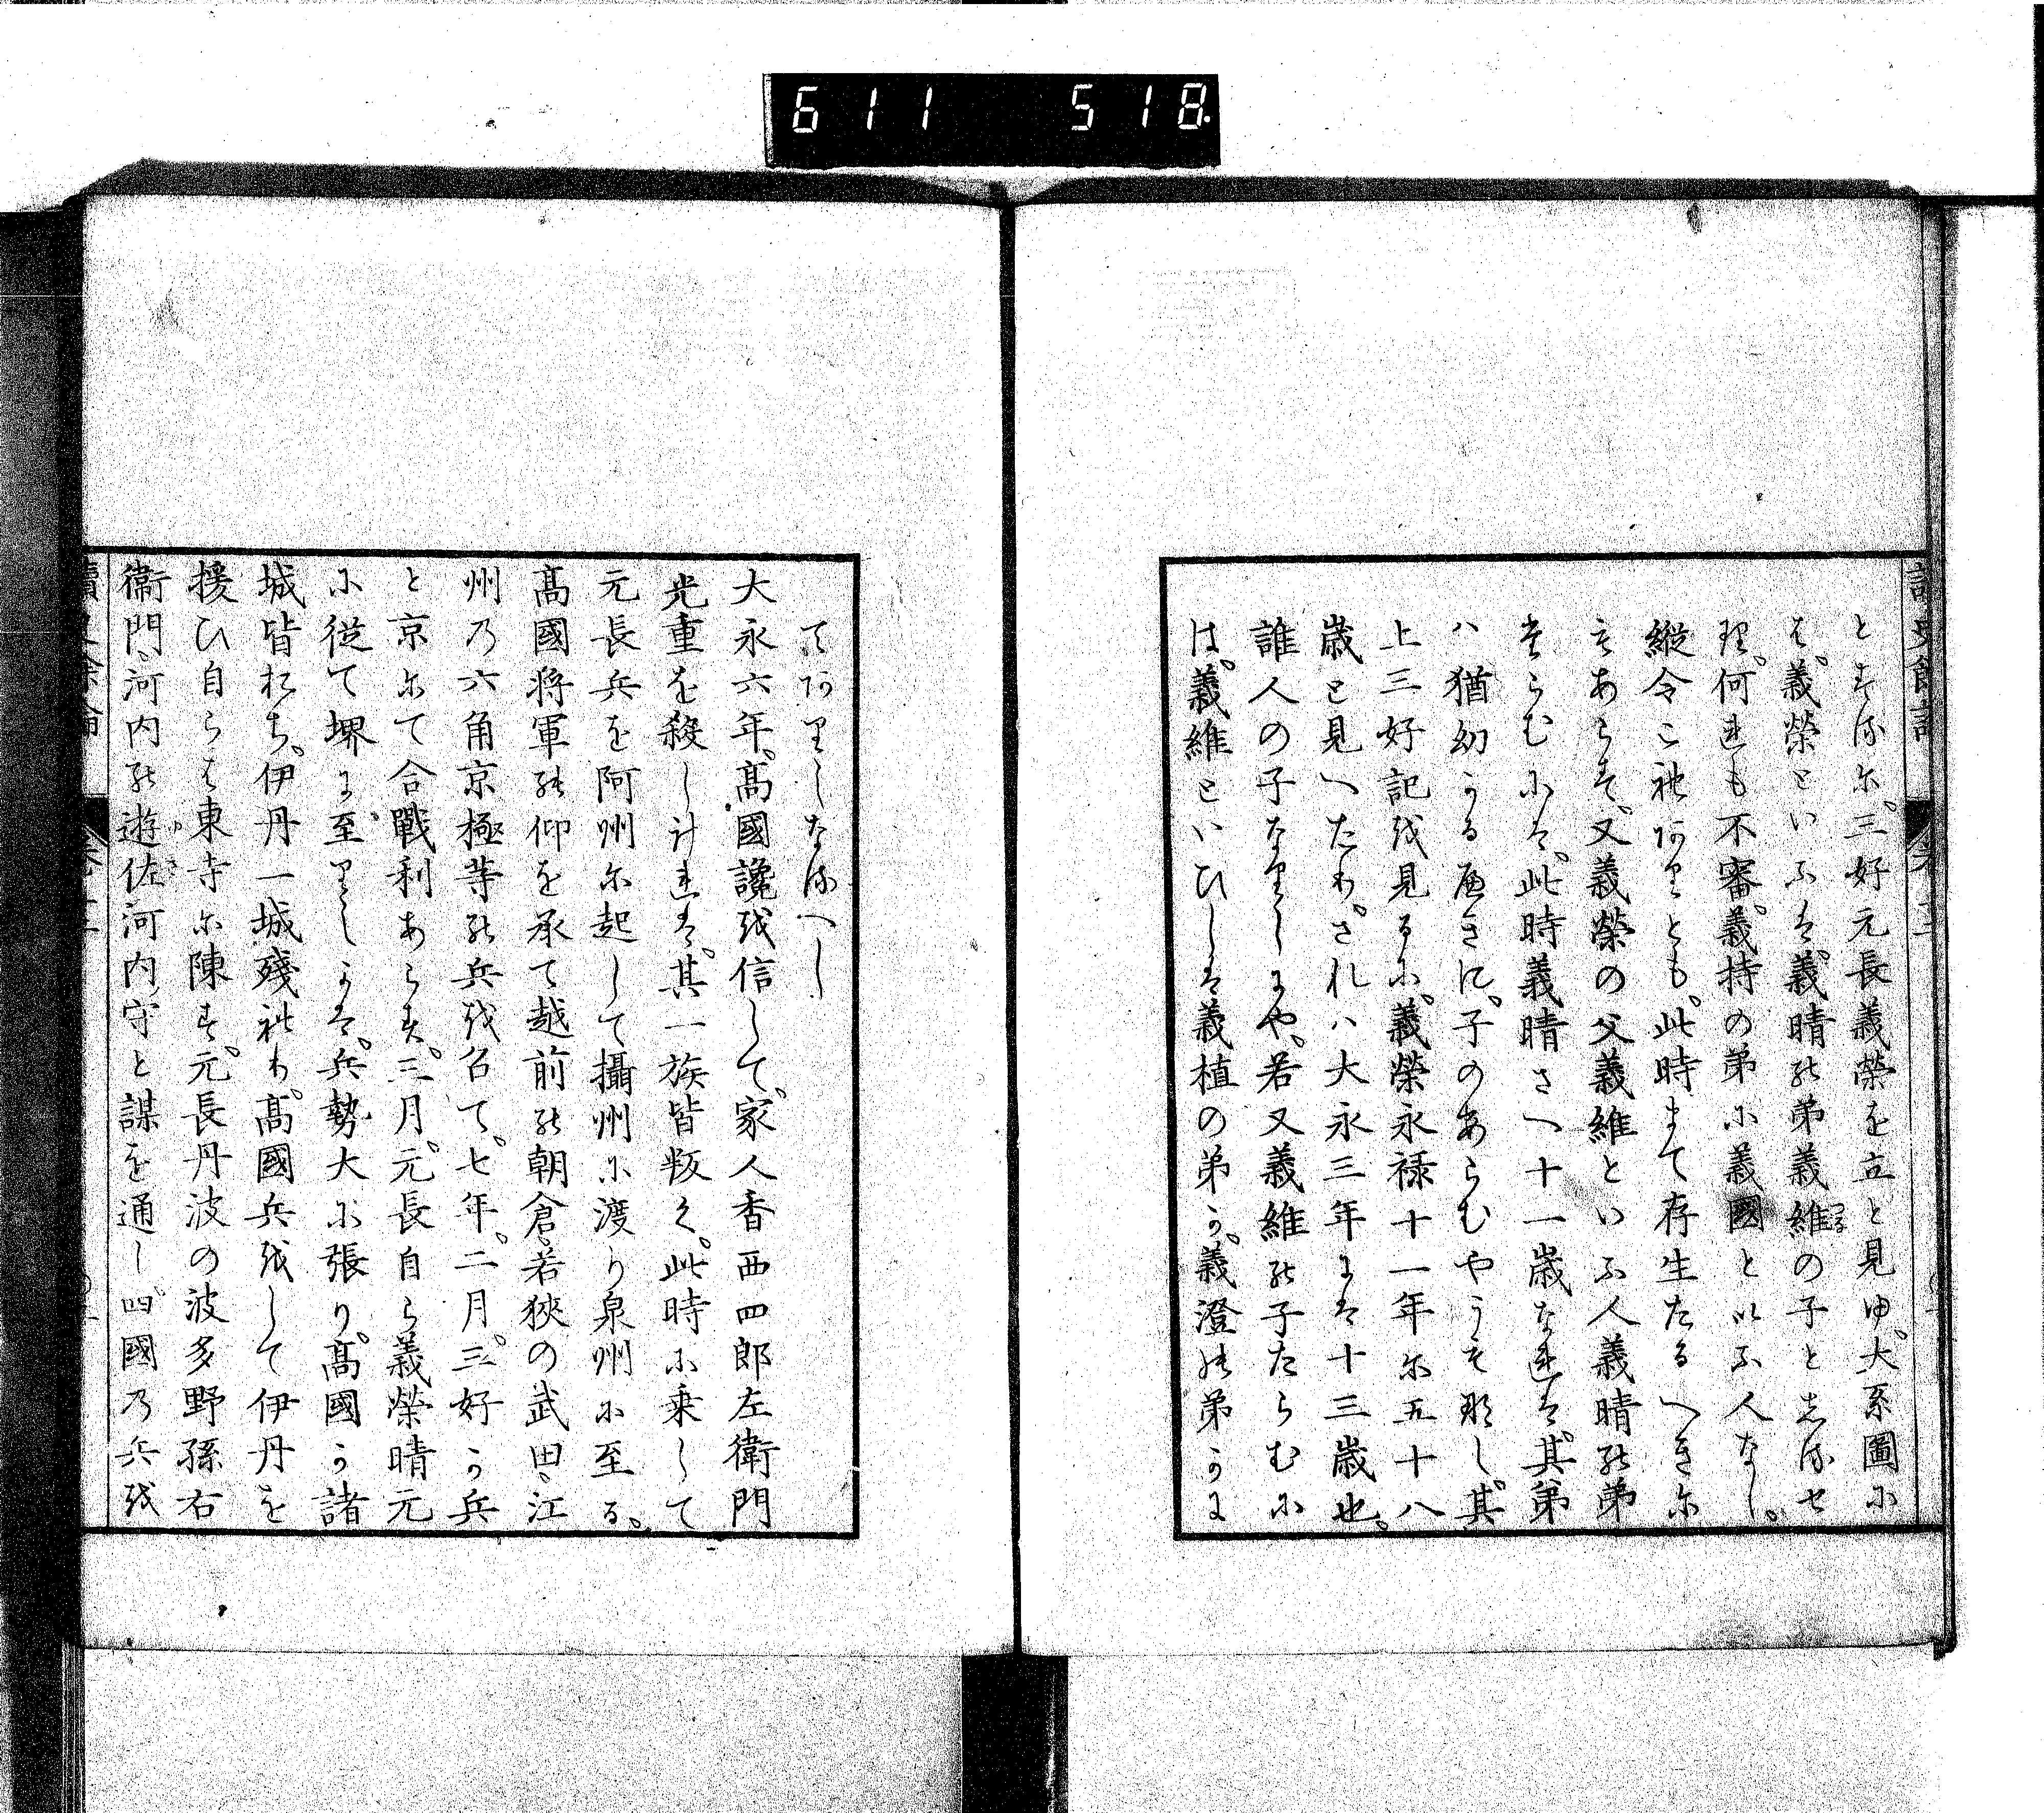 611 518
讀史餘論 卷十二
とするに。三好元長義榮を立と見ゆ。大系圖に
は。義榮といふは。義晴の弟義維の子としるせ
り。何れも不審。義持の弟に義國といふ人なし。
縦令これありとも。此時まて存生たるへきに
もあらす。又義榮の父義維といふ人義晴の弟
ならむには。此時義晴さへ十一歳なれは。其弟
ハ猶幼かるへきに。子のあらむやうもなし。其
上三好記を見るに。義榮永禄十一年に五十八
歳と見へたり。されハ大永三年には十三歳也。
誰人の子なりしにや。若又義維の子たらむに
は。義維といひしは義植の弟か。義澄の弟かに
てありしなるへし
大永六年。髙國讒を信して。家人香西四郎左衛門
光重を殺しけれは。其一族皆叛く。此時に乗して
元長兵を阿州に起して攝州に渡り泉州に至る。
髙國將軍の仰を承て越前の朝倉。若狹の武田。江
州乃六角京極等の兵を召て。七年。二月。三好か兵
と京にて合戰利あらす。三月。元長自ら義榮晴元
に従て堺に至りしかは。兵勢大に張り。髙國か諸
城皆おち。伊丹一城殘れり。髙國兵をして伊丹を
援ひ自らは東寺に陳す。元長丹波の波多野孫右
衞門。河内の遊佐河内守と謀を通し四國乃兵を
讀史餘論 卷十二